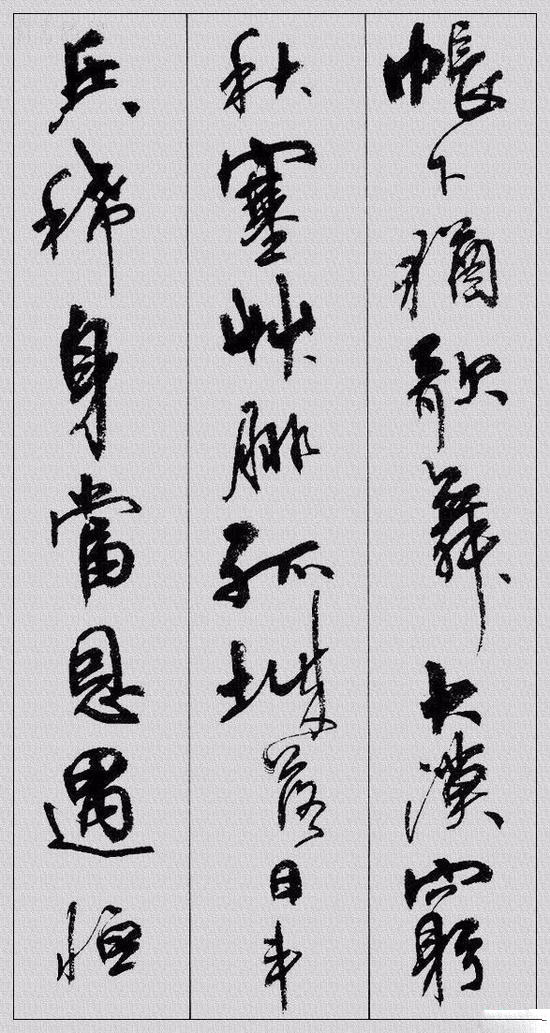 帳下猶歌舞大漠窮
秋塞艸腓孤城落日斗
兵稀身當恩遇恒